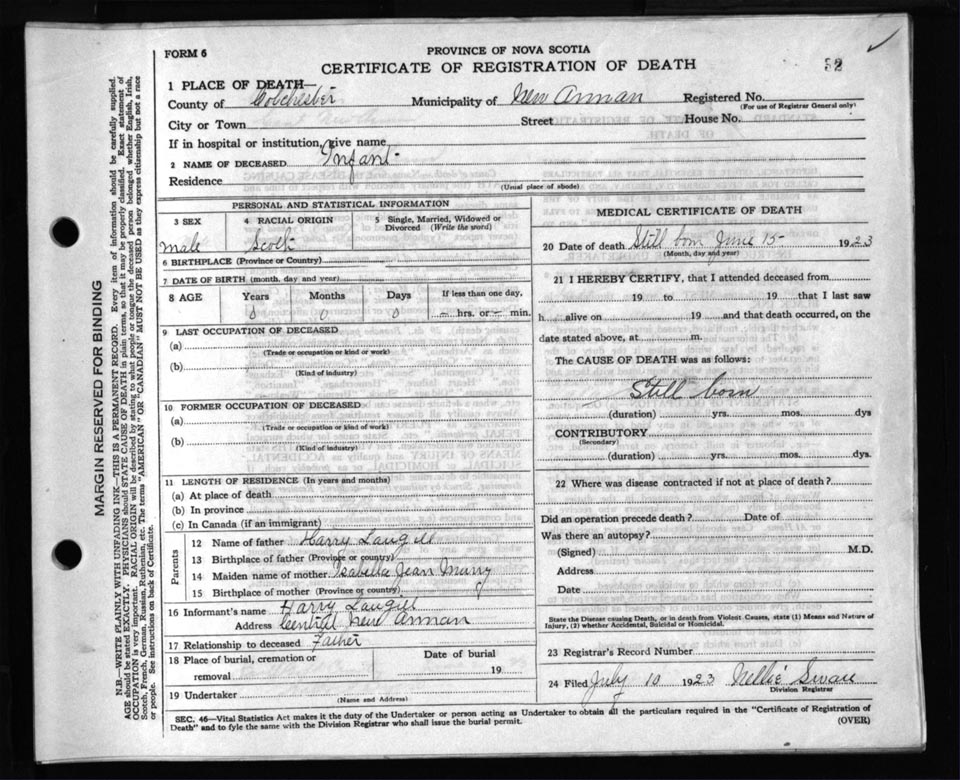 FORM 6
PROVINCE OF NOVA SCOTIA
CERTIFICATE OF REGISTRATION OF DEATH
52
1 PLACE OF DEATH
County of Colchester Municipality of New Annan Registered No.
(For use of Registrar General only)
City or Town Street House No.
If in hospital or institution, give name
2 NAME OF DECEASED Infant
Residence
(Usual place of abode)
PERSONAL AND STATISTICAL INFORMATION
3 SEX 4 RACIAL ORIGIN 5 Single, Married, Widowed or Divorced (Write the word)
male Scotch
6 BIRTHPLACE (Province or Country)
7 DATE OF BIRTH (month, day and year)
8 AGE Years Months Days If less than one day,
0 0 0 — hrs. or — min.
9 LAST OCCUPATION OF DECEASED
(a)
(Trade or occupation or kind or work)
(b)
(Kind of industry)
10 FORMER OCCUPATION OF DECEASED
(a)
(Trade or occupation or kind or work)
(b)
(Kind of industry)
11 LENGTH OF RESIDENCE (In years and months)
(a) At place of death
(b) In province
(c) In Canada (if an immigrant)
Parents
12 Name of father Harry Langill
13 Birthplace of father (Province or country)
14 Maiden name of mother Isabella Jean
15 Birthplace of mother (Province or country)
16 Informant's name Harry Langill
Address Central New Annan
17 Relationship to deceased Father
18 Place of burial, cremation or removal Date of burial 19
19 Undertaker
(Name and Address)
MEDICAL CERTIFICATE OF DEATH
20 Date of death Still born June 15 1923
(Month, day and year)
21 I HEREBY CERTIFY, that I attended deceased from
19 to 19 that I last saw
h alive on 19 and that death occurred, on the
date stated above, at m.
The CAUSE OF DEATH was as follows:
Still born
(duration) yrs. mos. dys
CONTRIBUTORY
(Secondary)
(duration) yrs. mos. dys.
22 Where was disease contracted if not at place of death?
Did an operation precede death? Date of
Was there an autopsy?
(Signed) M.D.
Address
Date
State the Disease causing Death, or in death from Violent Causes, state (1) Means and Nature of
Injury, (2) whether Accidental, Suicidal or Homicidal.
23 Registrar's Record Number
24 Filed July 10 1923 Nellie Swan
Division Registrar
SEC. 46—Vital Statistics Act makes it the duty of the Undertaker or person acting as Undertaker to obtain all the particulars required in the "Certificate of Registration of
Death" and to fyle the same with the Division Registrar who shall issue the burial permit.
(OVER)
MARGIN RESERVED FOR BINDING
N.B.—WRITE PLAINLY WITH UNFADING INK—THIS IS A PERMANENT RECORD. Every item of information should be carefully supplied.
AGE should be stated EXACTLY. PHYSICIANS should STATE CAUSE OF DEATH in plain terms, so that it may be properly classified. Exact statement of
OCCUPATION is very important. RACIAL ORIGIN will be described by stating to what people or tongue the deceased person belonged whether English, Irish,
Scotch, French, German, Russian, Ruthenian, etc. The terms "AMERICAN" OR "CANADIAN" MUST NOT BE USED as they express citizenship but not a race
or people. See instructions on back of Certificate.